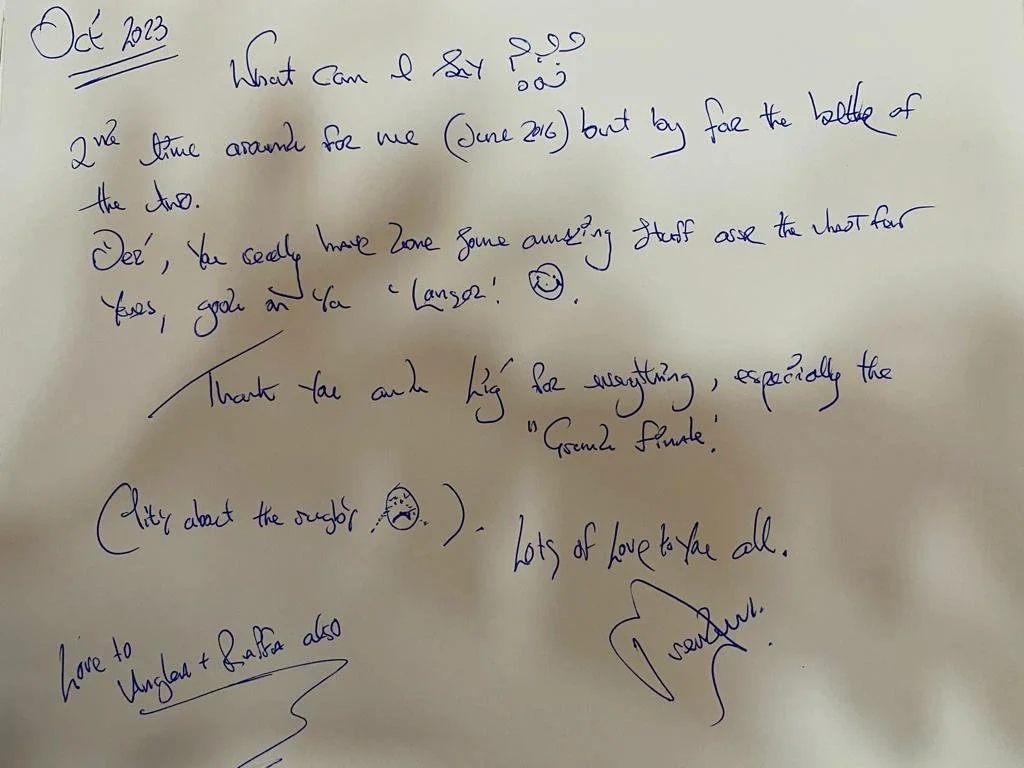 Oct 2023
What Can I Say ???
2nd time around for me (June 2016) but by far the better of
the two.
You really have done some amazing stuff over the last few
Years, good on Ya "Langer".
Thank You and for everything, especially the
"Grand Finale".
(Pity about the rugby ).
Lots of Love to You all.
Love to
+ Raffa also